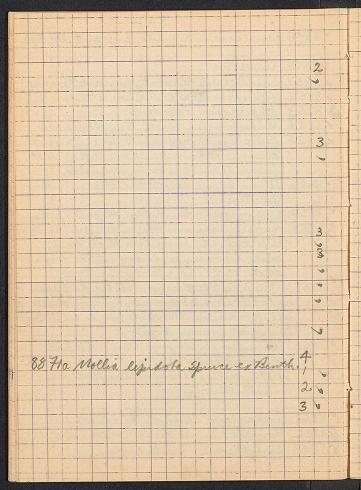 2
3
3
88 71a Mollia lepidota Spruce ex Benth. 4
1
2
3